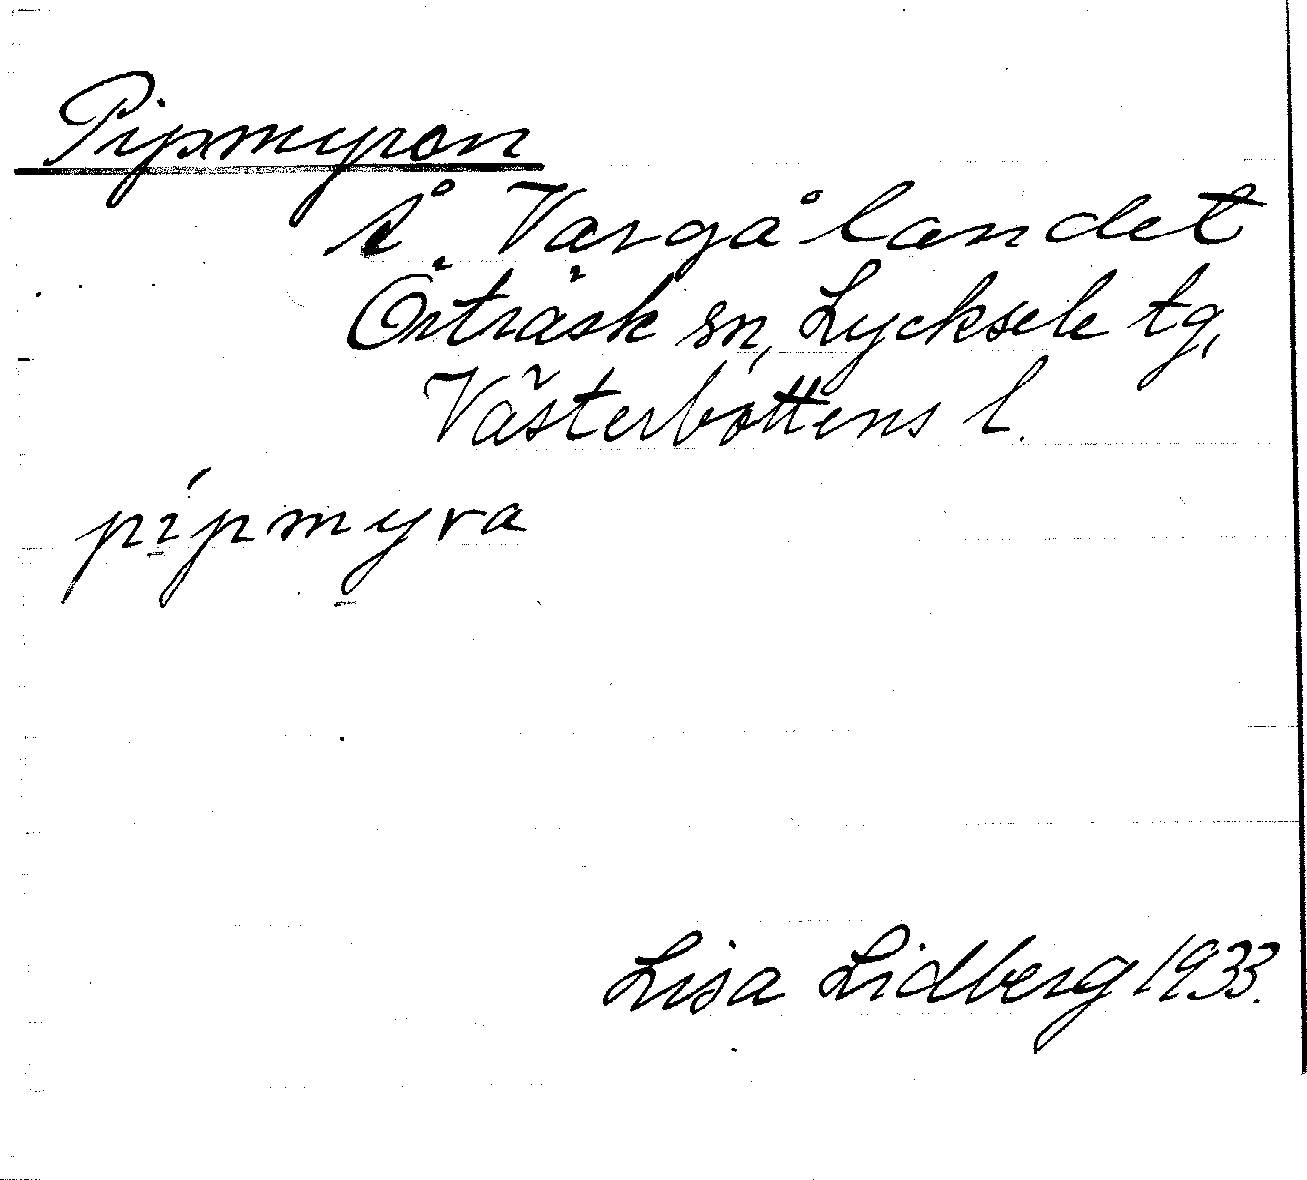 Pipmyran
å Vargålandet
Örträsk sn, Lycksele tg,
Västerbottens l.
pípmyra
Lisa Lidberg 1933.